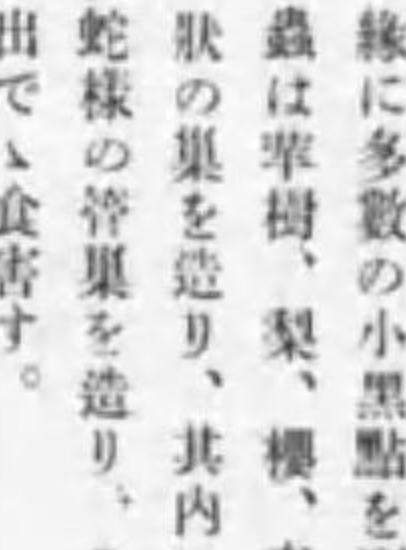 緣に多數の小黑點を
蟲は苹樹、梨、櫻、
狀の巢を造り、其内
蛇樣の管巢を造り、
出でゝ食害す。